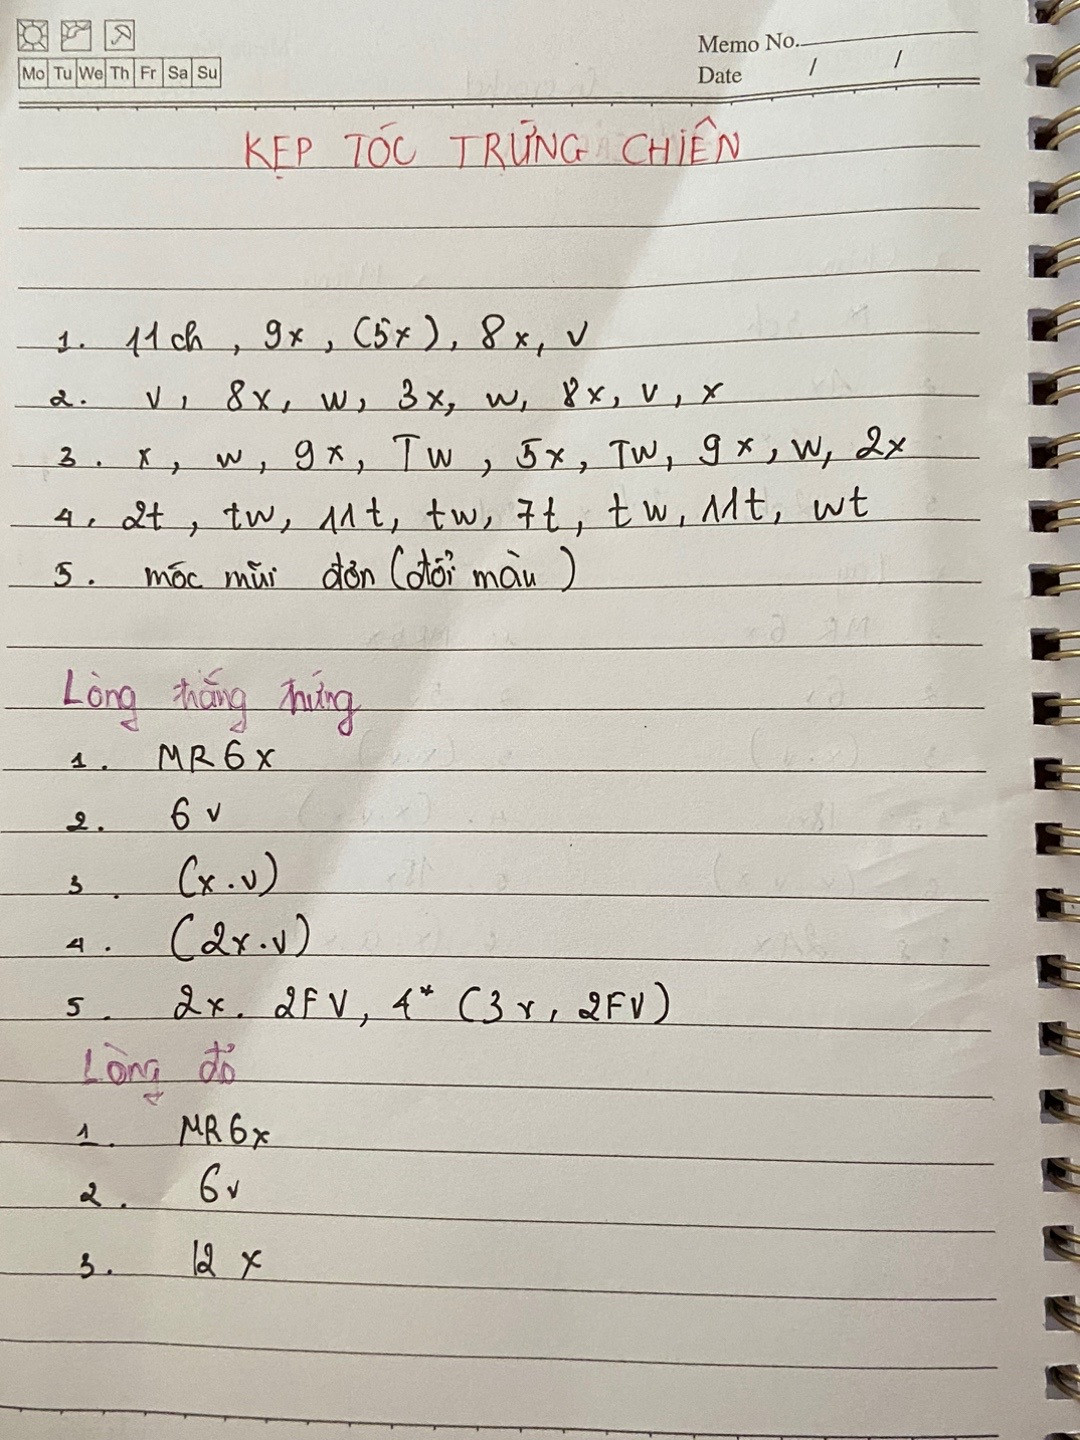 Memo No.
Mo Tu We Th Fr Sa Su
Date / /
KẸP TÓC TRỨNG CHIÊN
1. 11ch, 9x, (5x), 8x, v
2. v, 8x, w, 3x, w, 8x, v, x
3. x, w, 9x, Tw, 5x, Tw, 9x, w, 2x
4. 2t, tw, 11t, tw, 7t, tw, 11t, wt
5. móc mũi đơn (đổi màu)
Lòng trắng trứng
1. MR6x
2. 6v
3. (x.v)
4. (2x.v)
5. 2x. 2FV, 4* (3x, 2FV)
Lòng đỏ
1. MR6x
2. 6v
3. 12x